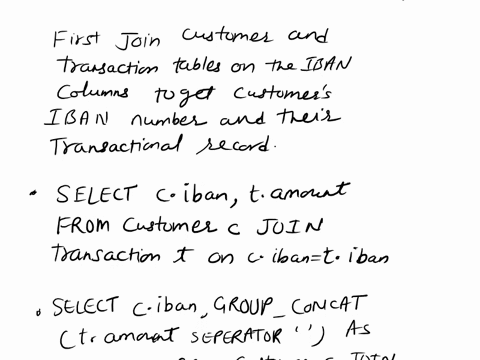 First Join Customer and
Transaction tables on the IBAN
Columns to get Customer's
IBAN number and their
Transactional record.
• SELECT c.iban, t.amount
FROM Customer c JOIN
Transaction t on c.iban=t.iban
• SELECT c.iban, GROUP_CONCAT
(t.amount SEPERATOR '') AS